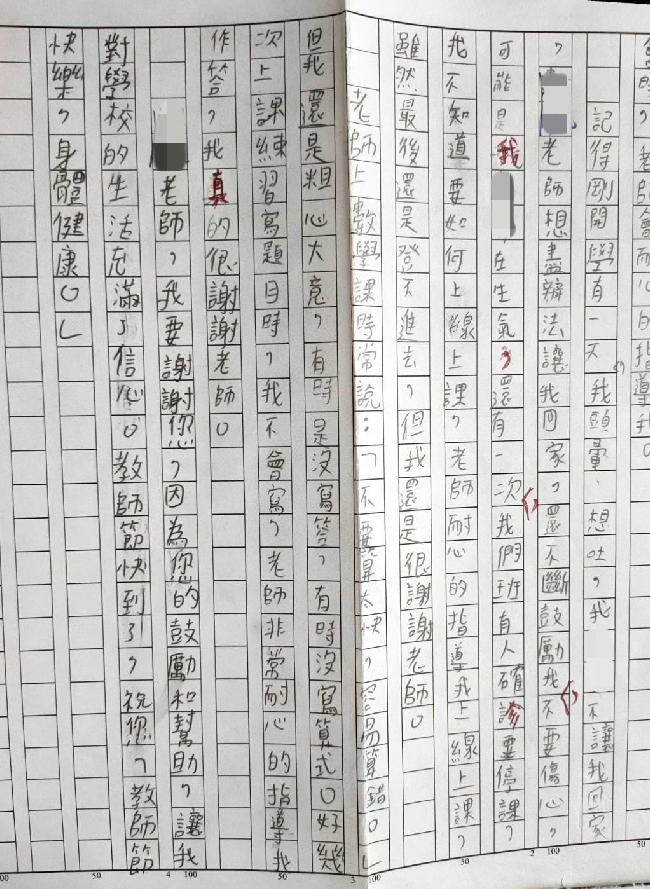 時，老師會耐心的指導我。
記得剛開學有一天我頭暈、想吐，我 不讓我回家
，ㄅ 老師想盡辦法讓我回家，還不斷鼓勵我不要傷心，
可能是我 在生氣了還有一次我們班有人確診要停課，
我不知道要如何上線上課，老師耐心的指導我上線上課，
雖然最後還是登不進去，但我還是很謝謝老師。
老師上數學課時常說：「不要算太快，容易算錯。」
但我還是粗心大意，有時是沒寫答，有時沒寫算式。好幾
次上課練習寫題目時，我不會寫，老師非常耐心的指導我
作答，我真的很謝謝老師。
老師，我要謝謝您，因為您的鼓勵和幫助，讓我
對學校的生活充滿了信心。教師節快到了，祝您，教師節
快樂，身體健康。」
50
2 100
50
3 100
50
4 100
50